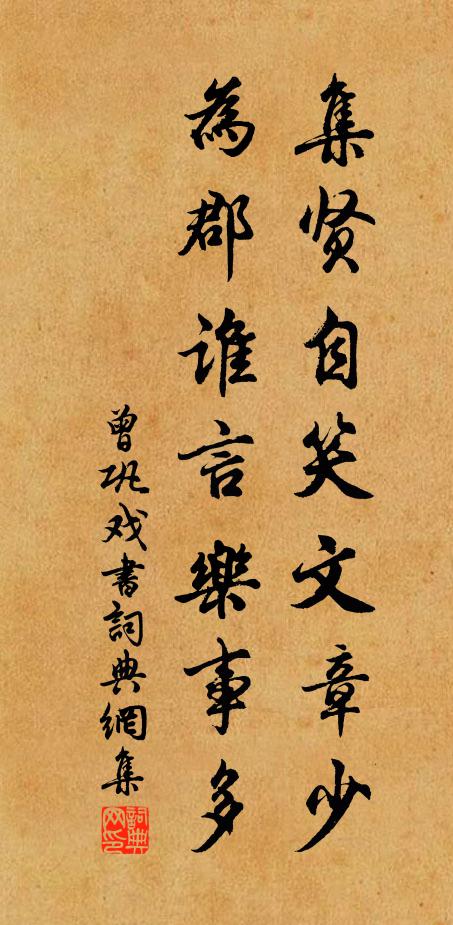 集贤自笑文章少
為郡谁言樂事多
曾巩戏書詞典網集
詞典网印